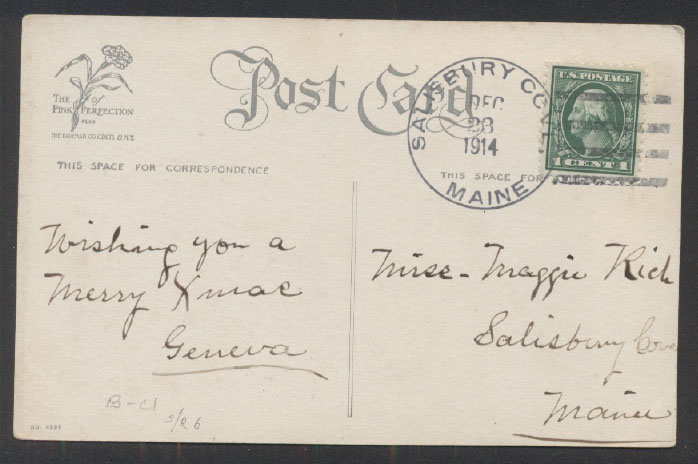 Post Card
THE PINK of PERFECTION
THE FAIRMAN CO. CIN'TI. & N.Y.
THIS SPACE FOR CORRESPONDENCE
SALISBURY COVE
DEC
23
1914
MAINE
U.S. POSTAGE
1 CENT 1
THIS SPACE FOR
Wishing you a
Merry Xmas
Geneva
Miss Maggie Rich
Salisbury Cove
Maine
B-C1